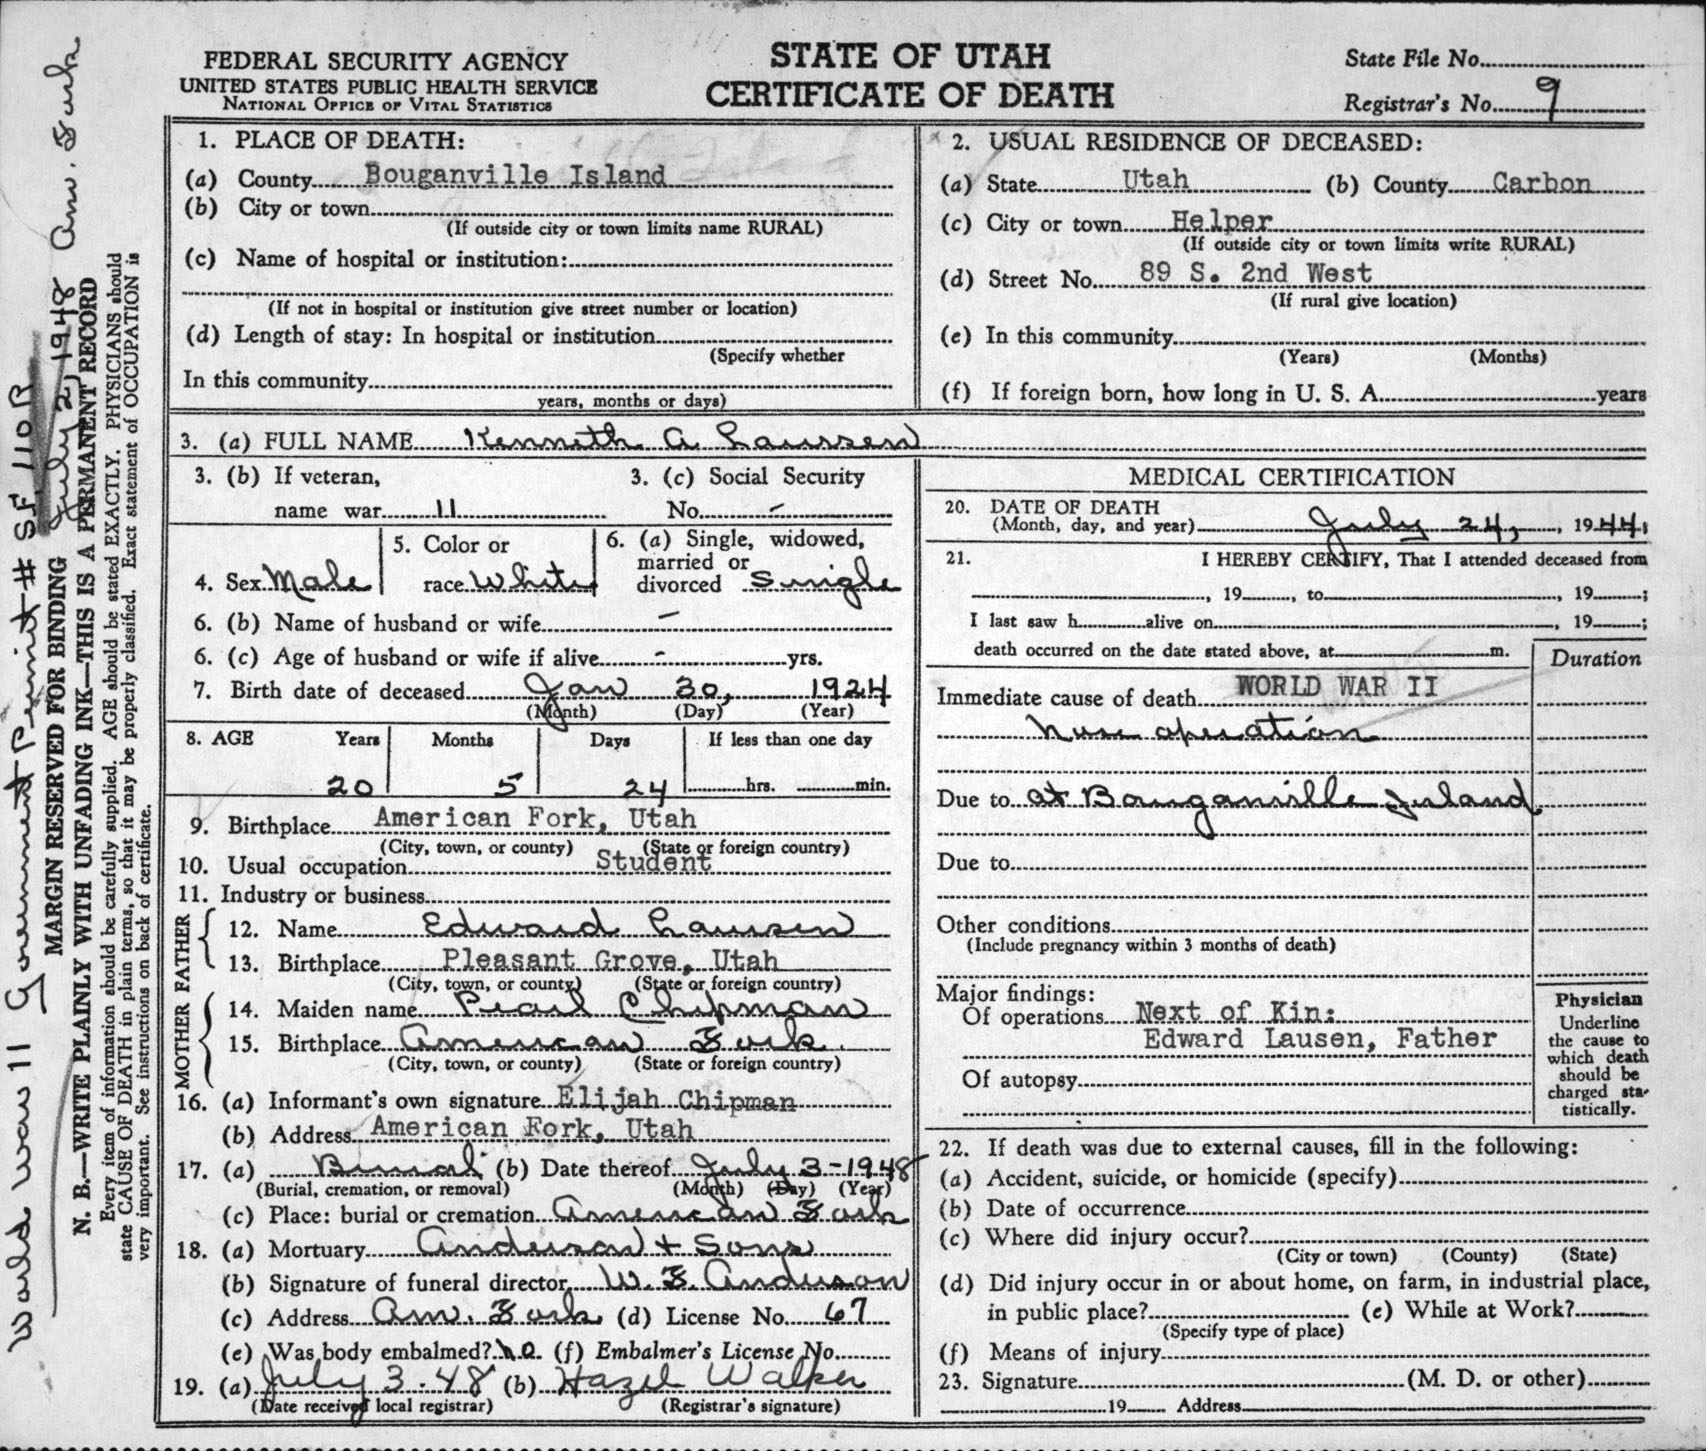 FEDERAL SECURITY AGENCY
UNITED STATES PUBLIC HEALTH SERVICE
NATIONAL OFFICE OF VITAL STATISTICS
STATE OF UTAH
CERTIFICATE OF DEATH
State File No.
Registrar's No. 9
1. PLACE OF DEATH:
(a) County Bouganville Island
(b) City or town
(If outside city or town limits name RURAL)
(c) Name of hospital or institution:
(If not in hospital or institution give street number or location)
(d) Length of stay: In hospital or institution
(Specify whether
In this community
years, months or days)
2. USUAL RESIDENCE OF DECEASED:
(a) State Utah (b) County Carbon
(c) City or town Helper
(If outside city or town limits write RURAL)
(d) Street No. 89 S. 2nd West
(If rural give location)
(e) In this community
(Years) (Months)
(f) If foreign born, how long in U. S. A. years
3. (a) FULL NAME Kenneth A Laussen
3. (b) If veteran,
name war 11
3. (c) Social Security
No. -
4. Sex Male
5. Color or
race White
6. (a) Single, widowed,
married or
divorced Single
6. (b) Name of husband or wife -
6. (c) Age of husband or wife if alive - yrs.
7. Birth date of deceased Jan 30, 1924
(Month) (Day) (Year)
8. AGE Years Months Days If less than one day
20 5 24 hrs. min.
9. Birthplace American Fork, Utah
(City, town, or county) (State or foreign country)
10. Usual occupation Student
11. Industry or business
FATHER
12. Name Edward Lausen
13. Birthplace Pleasant Grove, Utah
(City, town, or county) (State or foreign country)
MOTHER
14. Maiden name Pearl Chipman
15. Birthplace American Fork.
(City, town, or county) (State or foreign country)
16. (a) Informant's own signature Elijah Chipman
(b) Address American Fork, Utah
17. (a) Burial (b) Date thereof July 3-1948
(Burial, cremation, or removal) (Month) (Day) (Year)
(c) Place: burial or cremation American Fork
18. (a) Mortuary Anderson + Sons
(b) Signature of funeral director W. F. Anderson
(c) Address Am. Fork (d) License No. 67
(e) Was body embalmed? no. (f) Embalmer's License No.
19. (a) July 3-48 (b) Hazel Walker
(Date received local registrar) (Registrar's signature)
MEDICAL CERTIFICATION
20. DATE OF DEATH
(Month, day, and year) July 24, 1944;
21. I HEREBY CERTIFY, That I attended deceased from
, 19 , to , 19 ;
I last saw h alive on , 19 ;
death occurred on the date stated above, at m.
Duration
Immediate cause of death WORLD WAR II
operation
Due to at Bouganville Island.
Due to
Other conditions
(Include pregnancy within 3 months of death)
Major findings:
Of operations Next of Kin:
Edward Lausen, Father
Of autopsy
Physician
Underline
the cause to
which death
should be
charged sta-
tistically.
22. If death was due to external causes, fill in the following:
(a) Accident, suicide, or homicide (specify)
(b) Date of occurrence
(c) Where did injury occur?
(City or town) (County) (State)
(d) Did injury occur in or about home, on farm, in industrial place,
in public place? (e) While at Work?
(Specify type of place)
(f) Means of injury
23. Signature (M. D. or other)
19 Address
World War 11 Government Permit # SF 110R
July 2, 1948 Am. Fork
MARGIN RESERVED FOR BINDING
N. B.—WRITE PLAINLY WITH UNFADING INK—THIS IS A PERMANENT RECORD
Every item of information should be carefully supplied. AGE should be stated EXACTLY. PHYSICIANS should
state CAUSE OF DEATH in plain terms, so that it may be properly classified. Exact statement of OCCUPATION is
very important. See instructions on back of certificate.